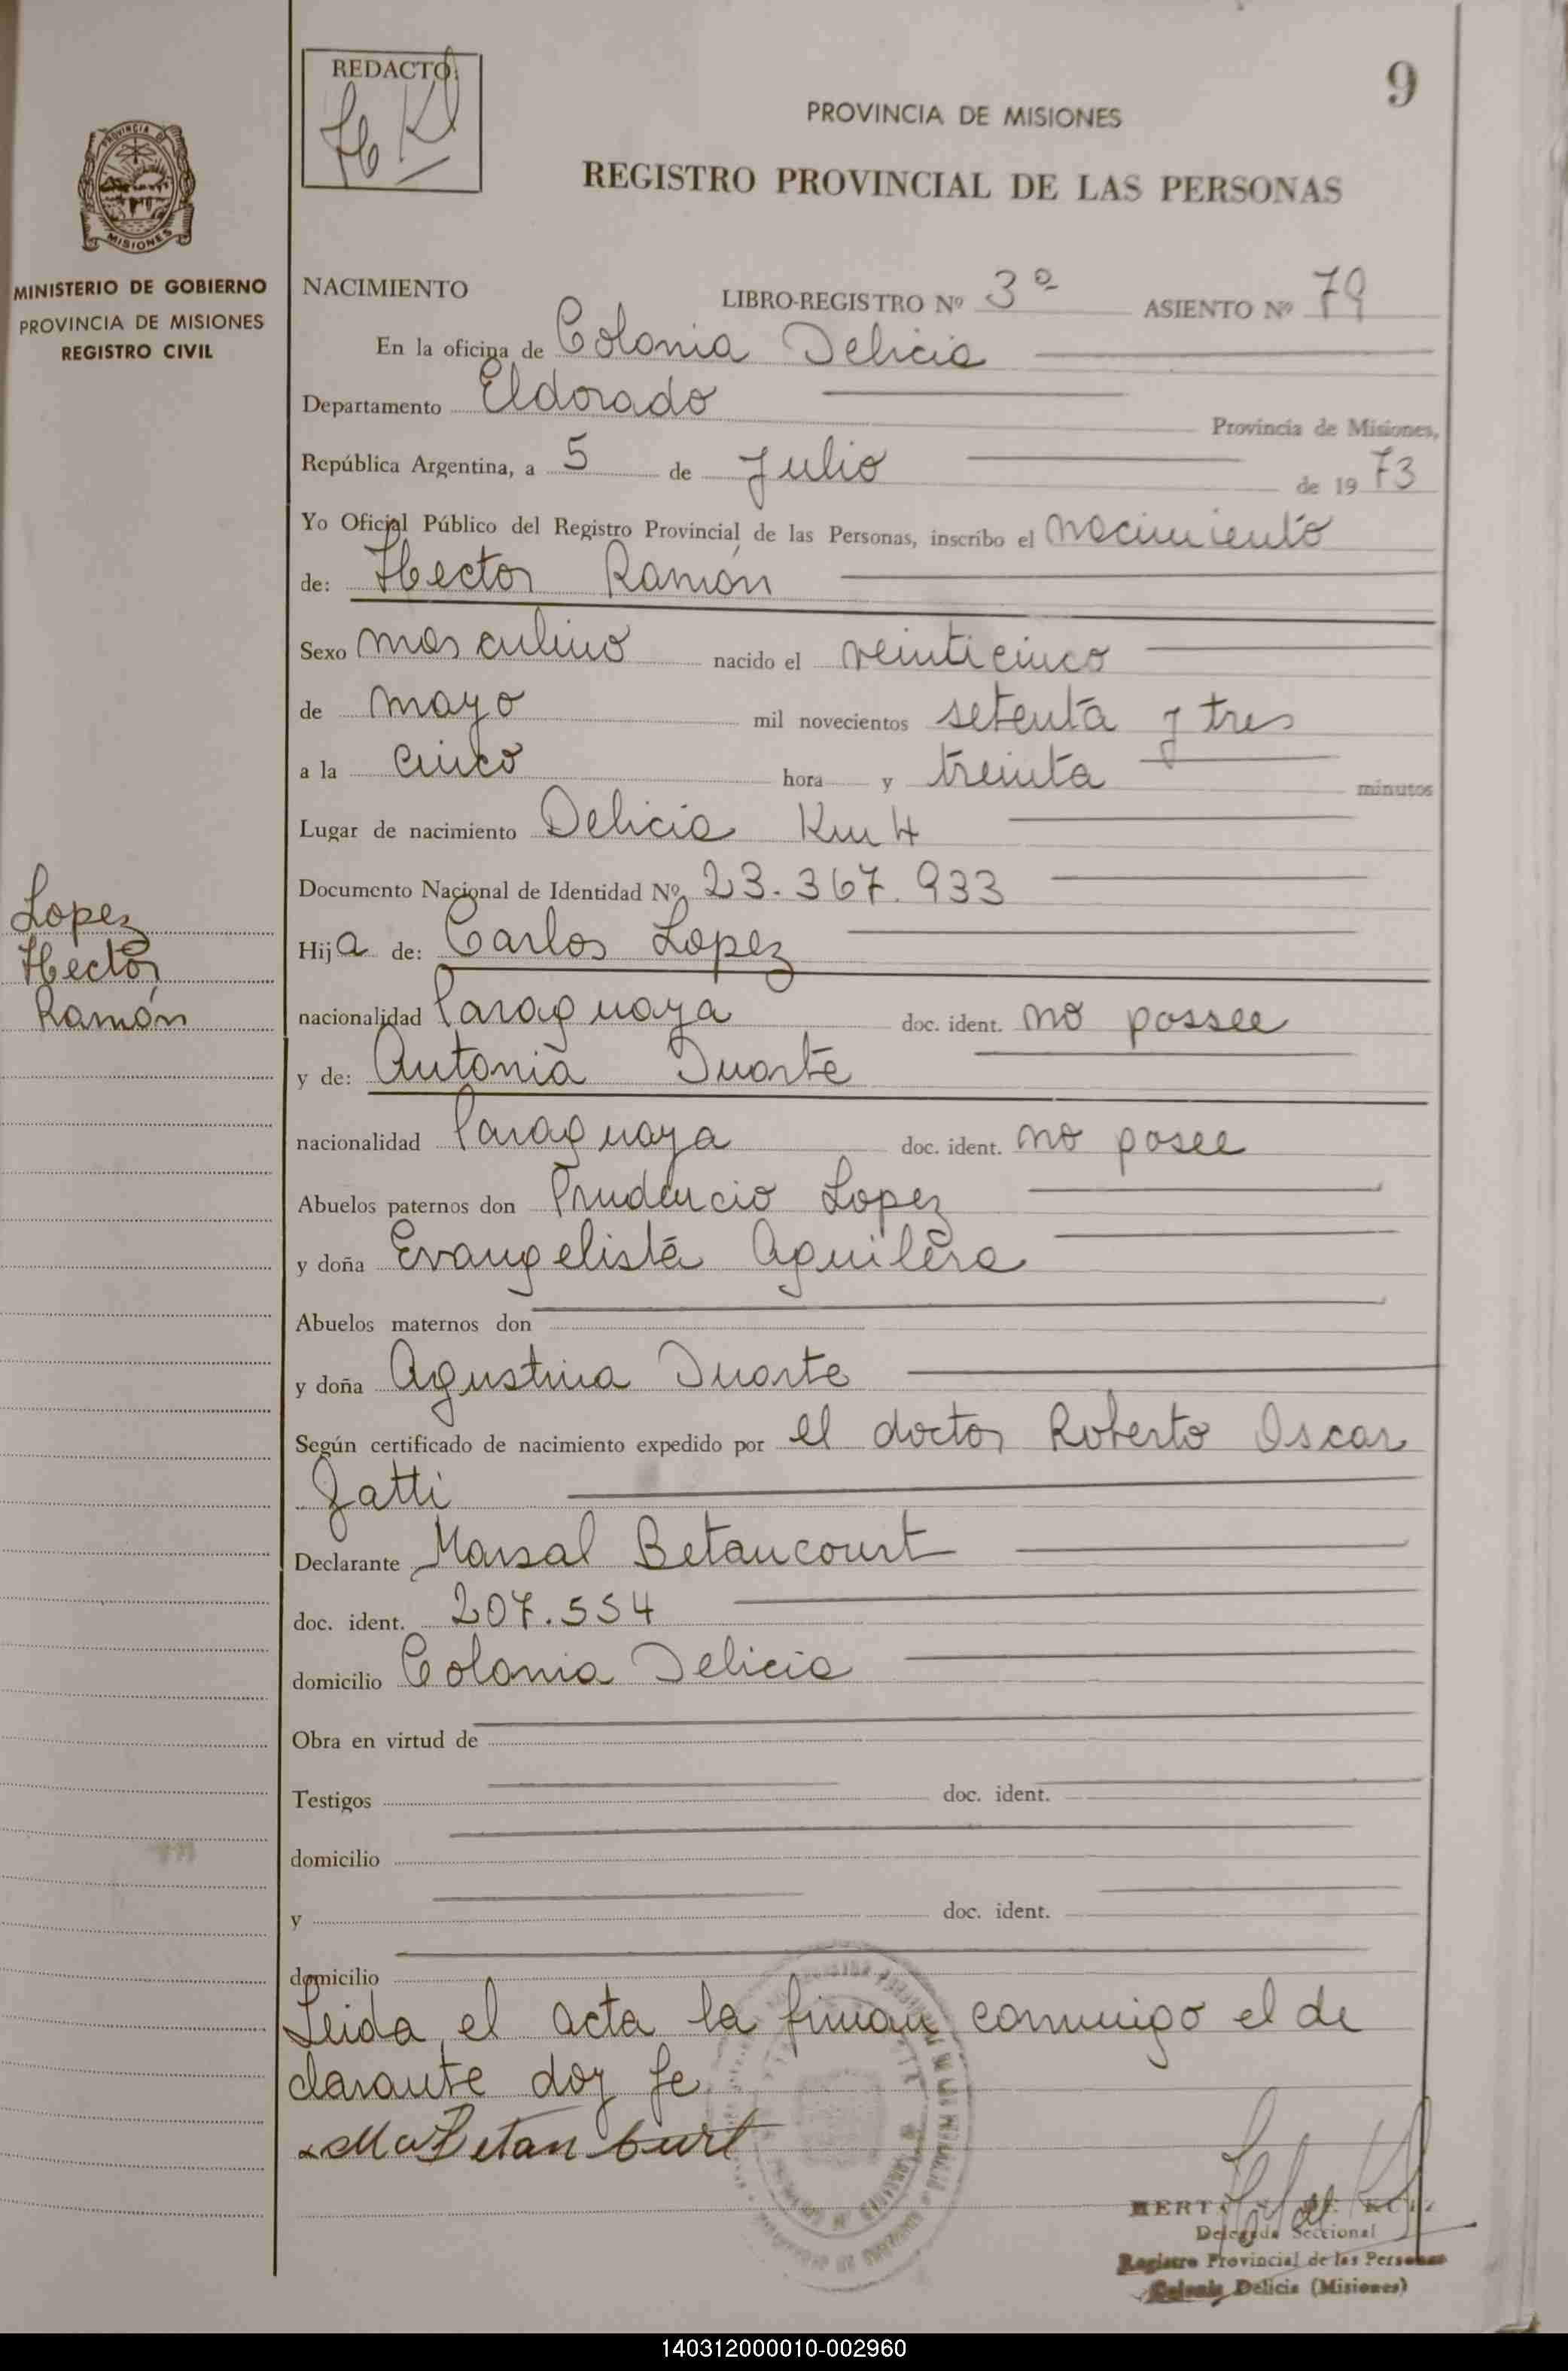 REDACTO
9
PROVINCIA DE MISIONES
REGISTRO PROVINCIAL DE LAS PERSONAS
PROVINCIA DE
MISIONES
MINISTERIO DE GOBIERNO
PROVINCIA DE MISIONES
REGISTRO CIVIL
NACIMIENTO LIBRO-REGISTRO Nº 3º ASIENTO Nº 79
En la oficina de Colonia Delicia
Departamento Eldorado Provincia de Misiones,
República Argentina, a 5 de Julio de 1973
Yo Oficial Público del Registro Provincial de las Personas, inscribo el nacimiento
de: Hector Ramón
Sexo masculino nacido el veinticinco
de mayo mil novecientos setenta y tres
a la cinco hora y treinta minutos
Lugar de nacimiento Delicia Km 4
Documento Nacional de Identidad Nº 23.367.933
Lopez
Hector
Ramón
Hija de: Carlos Lopez
nacionalidad Paraguaya doc. ident. no possee
y de: Antonia Duarte
nacionalidad Paraguaya doc. ident. no posee
Abuelos paternos don Prudencio Lopez
y doña Evangelista Aguilera
Abuelos maternos don
y doña Agustina Duarte
Según certificado de nacimiento expedido por el doctor Roberto Oscar
Zatti
Declarante Marsal Betancourt
doc. ident. 207.554
domicilio Colonia Delicia
Obra en virtud de
Testigos doc. ident.
domicilio
y doc. ident.
domicilio
Leida el acta la firman conmigo el de
clarante doy fe
Delegada Seccional
Registro Provincial de las Personas
Colonia Delicia (Misiones)
140312000010-002960